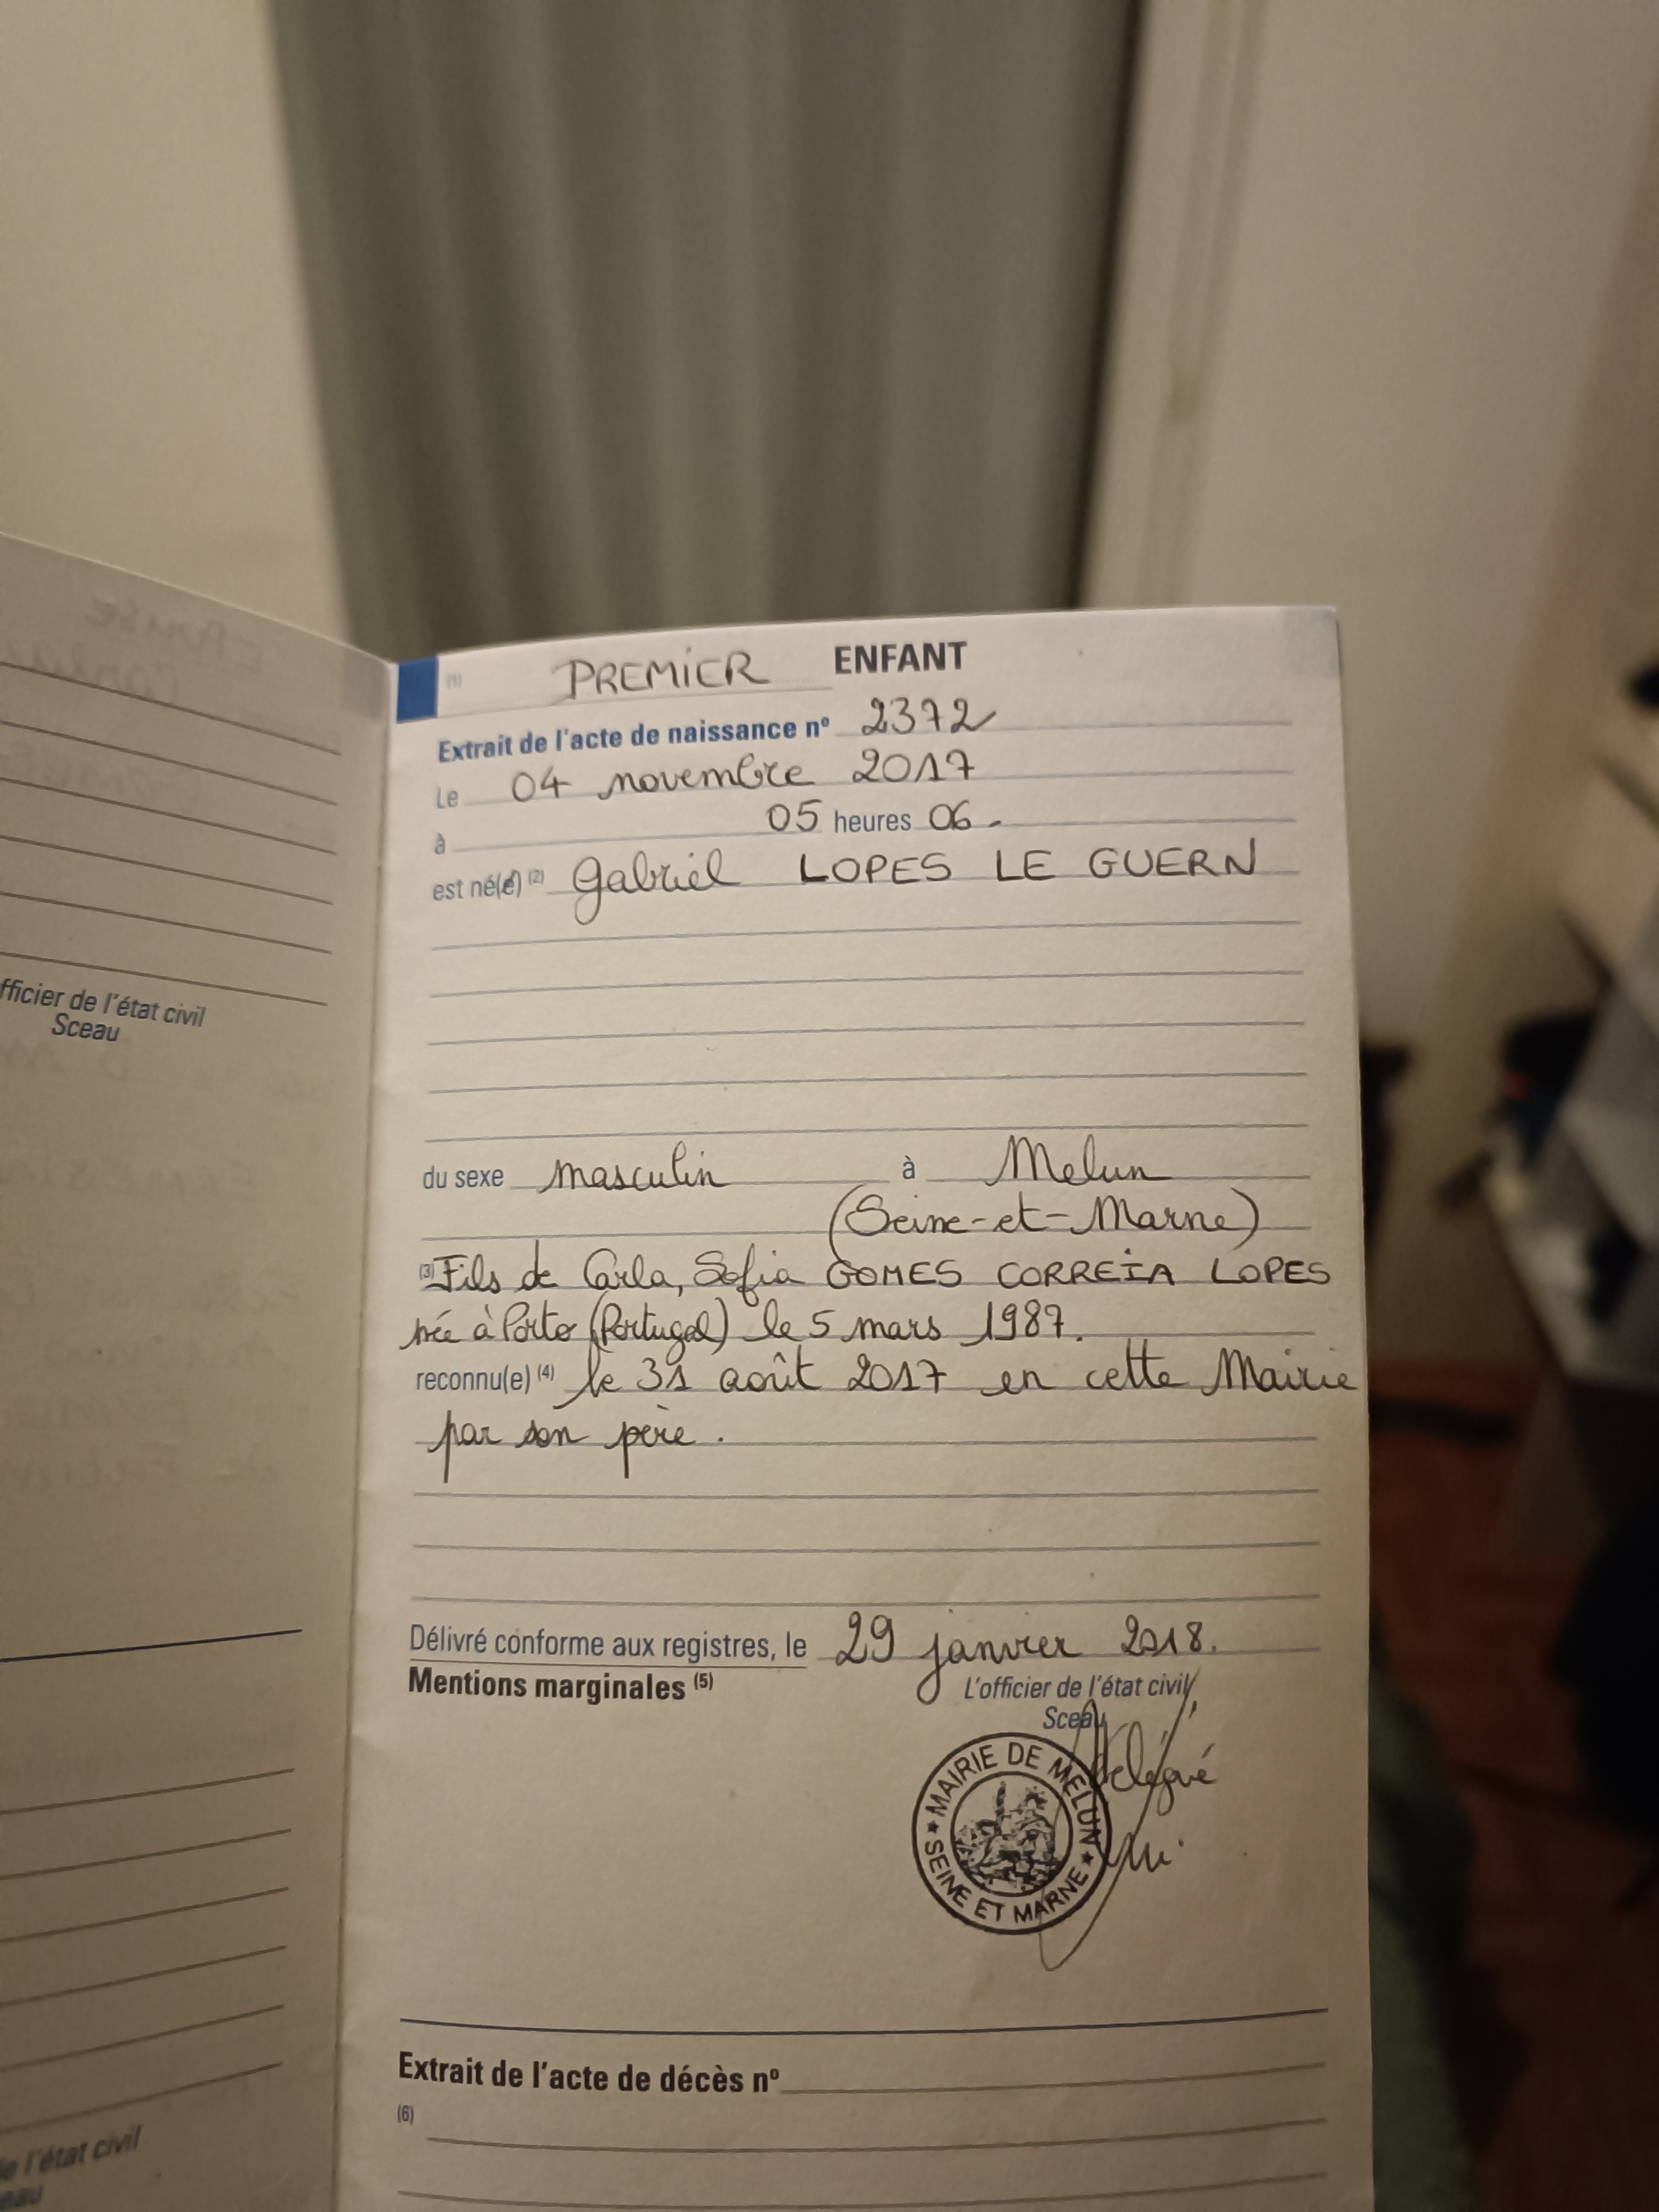 fficier de l'état civil
Sceau
(1) PREMIER ENFANT
Extrait de l'acte de naissance nº 2372
Le 04 novembre 2017
à 05 heures 06.
est né(e) (2) Gabriel LOPES LE GUERN
du sexe masculin à Melun
(Seine-et-Marne)
(3) Fils de Carla, Sofia GOMES CORREIA LOPES
née à Porto (Portugal) le 5 mars 1987.
reconnu(e) (4) le 31 août 2017 en cette Mairie
par son père.
Délivré conforme aux registres, le 29 janvier 2018.
Mentions marginales (5)
L'officier de l'état civil
Sceau
Délégué
MAIRIE DE MELUN
SEINE ET MARNE
Extrait de l'acte de décès nº
(6)
e l'état civil
eau